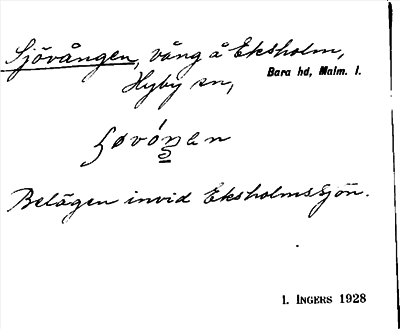 Sjövången, vång å Eksholm,
Hyby sn, Bara hd, Malm. l.
Belägen invid Eksholmssjön.
I. INGERS 1928